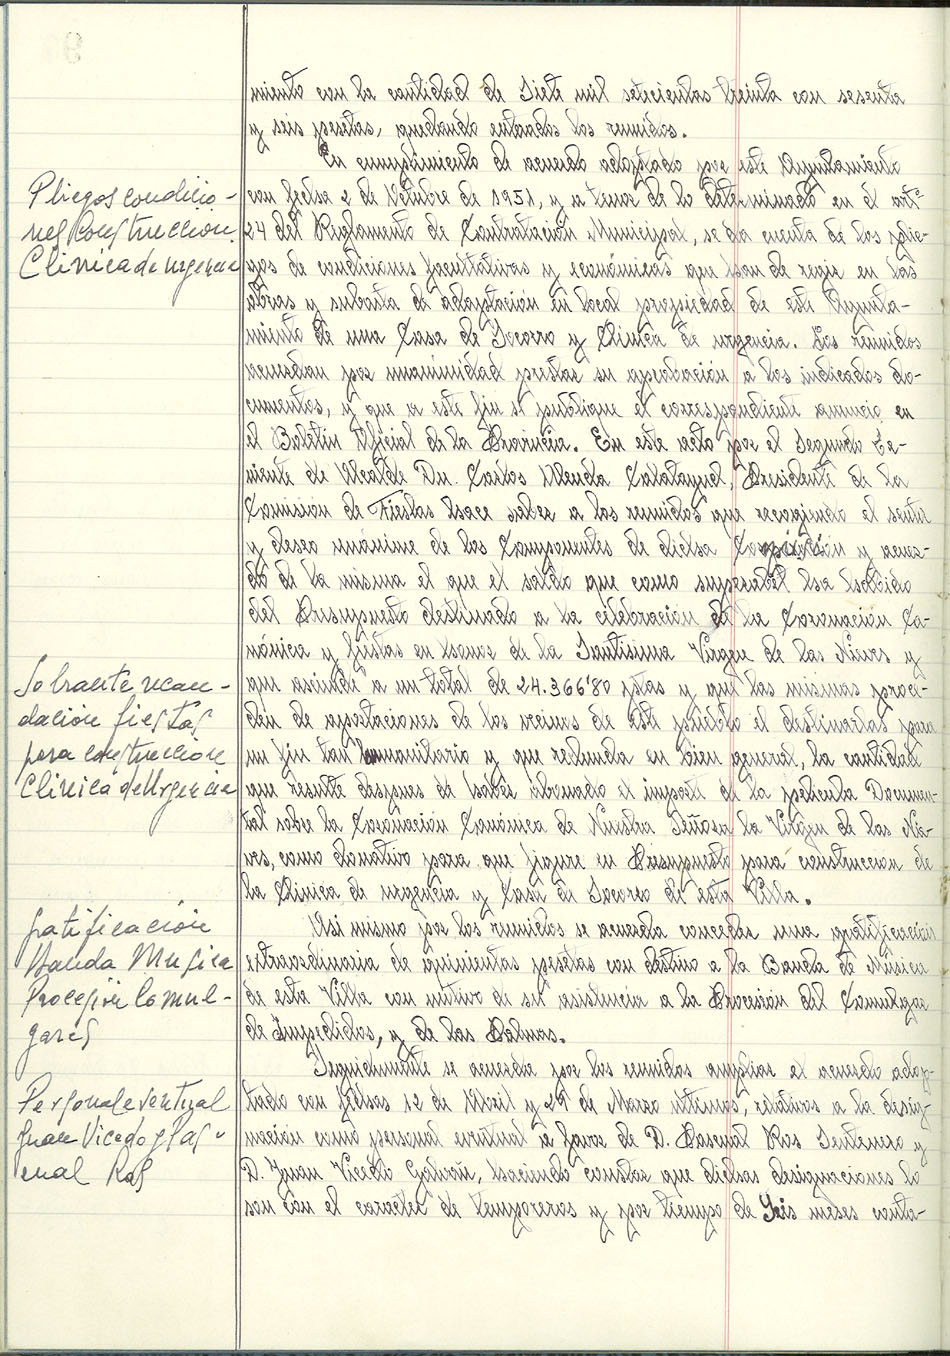 miento con la cantidad de Siete mil setecientas treinta con sesenta
y seis pesetas, quedando enterados los reunidos.
En cumplimiento de acuerdo adoptado por este Ayuntamiento
Pliegos condicio-
nes Construccion
Clinica de urgencia
con fecha 2 de Octubre de 1951, y a tenor de lo determinado en el artº
24 del Reglamento de Contratación Municipal, se da cuenta de los plie-
gos de condiciones facultativas y económicas que han de regir en las
obras y subasta de adaptación en local propiedad de este Ayunta-
miento de una Casa de Socorro y Clinica de urgencia. Los reunidos
acuerdan por unanimidad prestar su aprobación a los indicados do-
cumentos, y que a este fin se publique el correspondiente anuncio en
el Boletin Oficial de la Provincia. En este acto por el Segundo Te-
niente de Alcalde Dn. Carlos Calatayud, Presidente de la
Comision de Fiestas hace saber a los reunidos que recogiendo el sentir
y deseo unánime de los Componentes de dicha y acuer-
do de la misma el que el saldo que como superabit ha habido
del Presupuesto destinado a la celebración de la Coronación Ca-
nónica y fiestas en honor de la Santisima Virgen de las Nieves y
Sobrante recau-
dación fiestas
para construccion
Clinica de Urgencia
que asciende a un total de 24.366'80 ptas y que las mismas proce-
den de aportaciones de los vecinos de este pueblo el destinarlas para
un fin tan humanitario y que redunda en bien general, la cantidad
que resulte despues de haber abonado el importe de la pelicula Documen-
tal sobre la Coronación Canónica de Nuestra Señora la Virgen de las Nie-
ves, como donativo para que figure en Presupuesto para construccion de
la Clinica de urgencia y Casa de Socorro de esta Villa.
Gratificación
Banda Musica
Procesión Comul-
gares
Asi mismo por los reunidos se acuerda conceder una gratificación
extraordinaria de quinientas pesetas con destino a la Banda de Música
de esta Villa con motivo de su asistencia a la Procesión del Comulgar
de Impedidos, y de las Palmas.
Seguidamente se acuerda por los reunidos ampliar el acuerdo adop-
Personal eventual
Juan Vicedo y Pas-
cual Ros
tado con fechas 12 de Abril y 29 de Marzo ultimos, relativos a la desig-
nación como personal eventual a favor de D. Pascual Ros Sentenero y
D. Juan Vicedo Galván, haciendo constar que dichas designaciones lo
son con el caracter de temporeros y por tiempo de Seis meses conta-